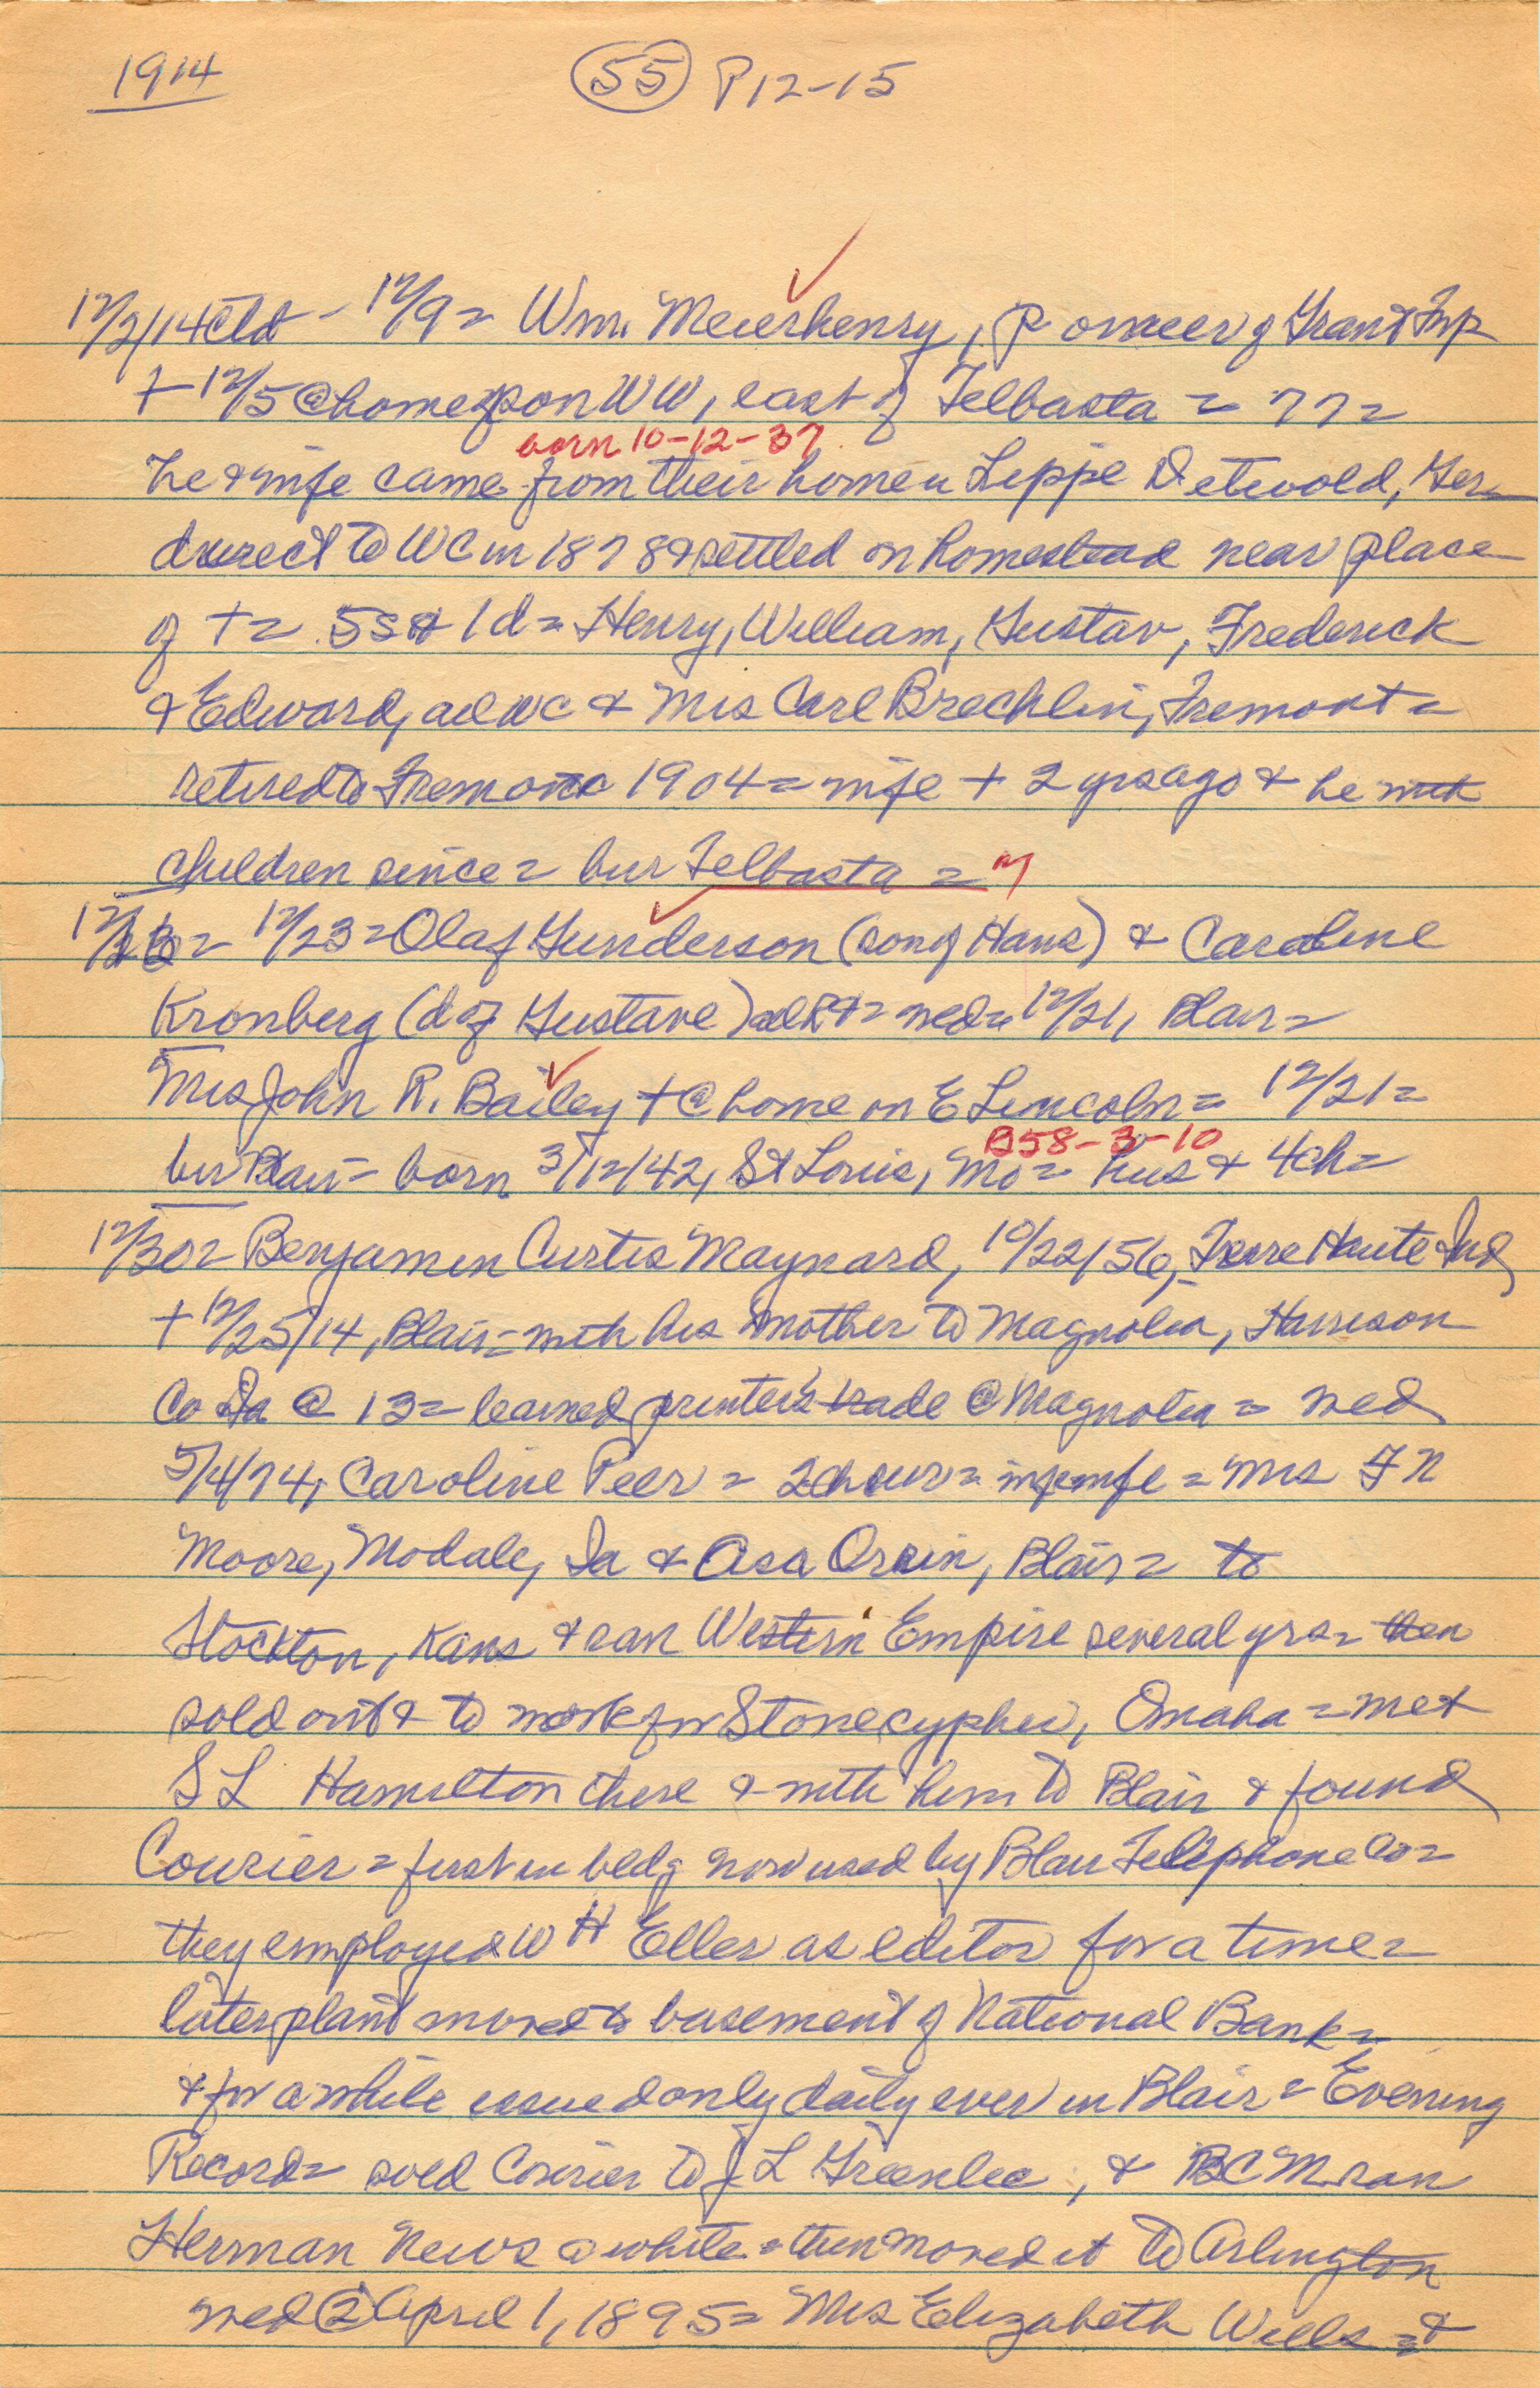 1914 (55) P12-15
12/2/14 Cld - 12/9= Wm. Meierhenry, Pioneer of Grant Twp
+ 12/5 @ home of son WW, east of Telbasta = 77=
born 10-12-37
he & wife came from their home in Lippe Detwold, Ger-
direct to WC in 1878 & settled on homestead near place
of += 5s & 1d = Henry, William, Gustav, Frederick
& Edward, all WC & Mrs Carl Brechlin, Fremont =
retired to Fremont 1904 = wife + 2 yrs ago & he with
children since = bur Telbasta =
12/23= Olaf Gunderson (son of Hans) & Caroline
Kronberg (d of Gustave) wed= 12/21, Blair=
Mrs John R. Bailey + @ home on E Lincoln = 12/21=
B58-3-10
bur Blair = born 3/12/42, St Louis, Mo = hus & 4ch=
12/30= Benjamin Curtis Maynard, 10/22/56, Terre Haute Ind
+ 12/25/14, Blair = with his mother to Magnolia, Harrison
Co Ia @ 13= learned printer's trade @ Magnolia = wed
5/4/74, Caroline Peer = 2ch sur = wife = Mrs F N
Moore, Modale, Ia & Asa Orrin, Blair = to
Stockton, Kans & ran Western Empire several yrs = then
sold out & to work for Stonecypher, Omaha = met
S L Hamilton there & with him to Blair & found
Courier = first in bldg now used by Blair Telephone Co=
they employed W H Eller as editor for a time=
later plant moved to basement of National Bank=
& for a while issued only daily ever in Blair = Evening
Record= sold Courier to J L Greenlee, & BCM ran
Herman News a while = then moved it to Arlington
wed (2) April 1, 1895= Mrs Elizabeth Wells = &